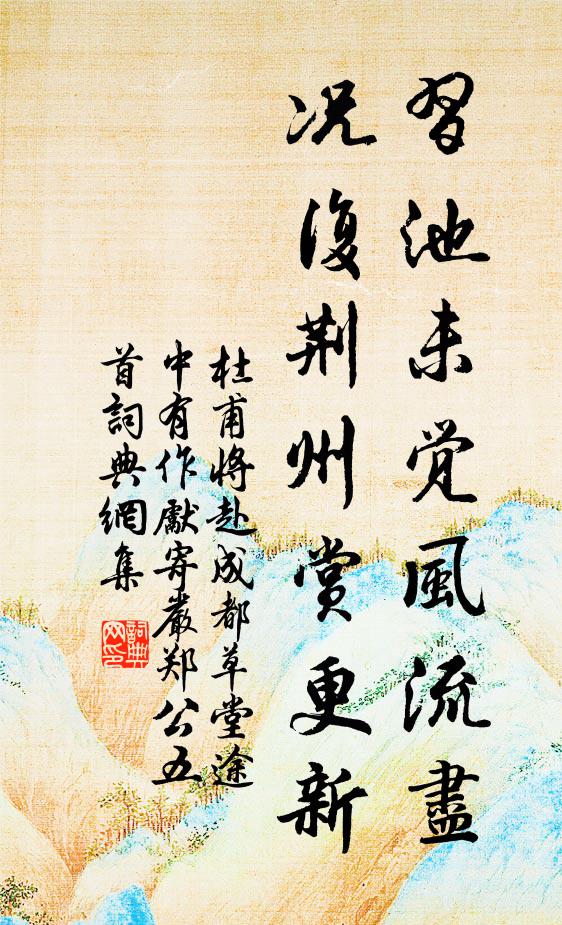 習池未覺風流盡
况復荆州賞更新
杜甫將赴成都草堂途
中有作獻寄嚴郑公五
首詞典網集
詞典
网印